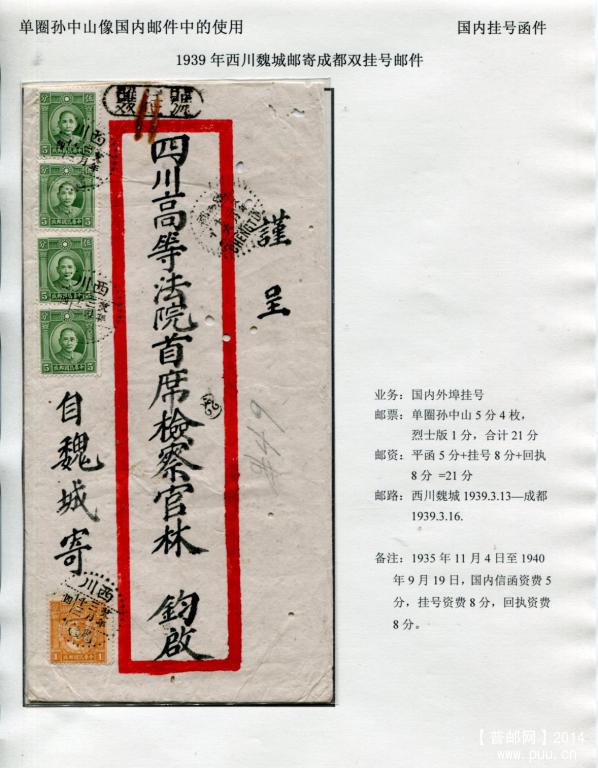 单圈孙中山像国内邮件中的使用
国内挂号函件
1939 年西川魏城邮寄成都双挂号邮件
雙挂號
四川高等法院首席檢察官林 鈞啟
謹呈
自魏城寄
西川
西川
西川
CHENGTU
伍分
5
5
伍分
5
5
伍分
5
5
伍分
5
5
1
1
#49
业务：国内外埠挂号
邮票：单圈孙中山 5 分 4 枚，
烈士版 1 分，合计 21 分
邮资：平函 5 分+挂号 8 分+回执
8 分 =21 分
邮路：西川魏城 1939.3.13—成都
1939.3.16.
备注：1935 年 11 月 4 日至 1940
年 9 月 19 日，国内信函资费 5
分，挂号资费 8 分，回执资费
8 分。
【普邮网】2014
www.puu.cn